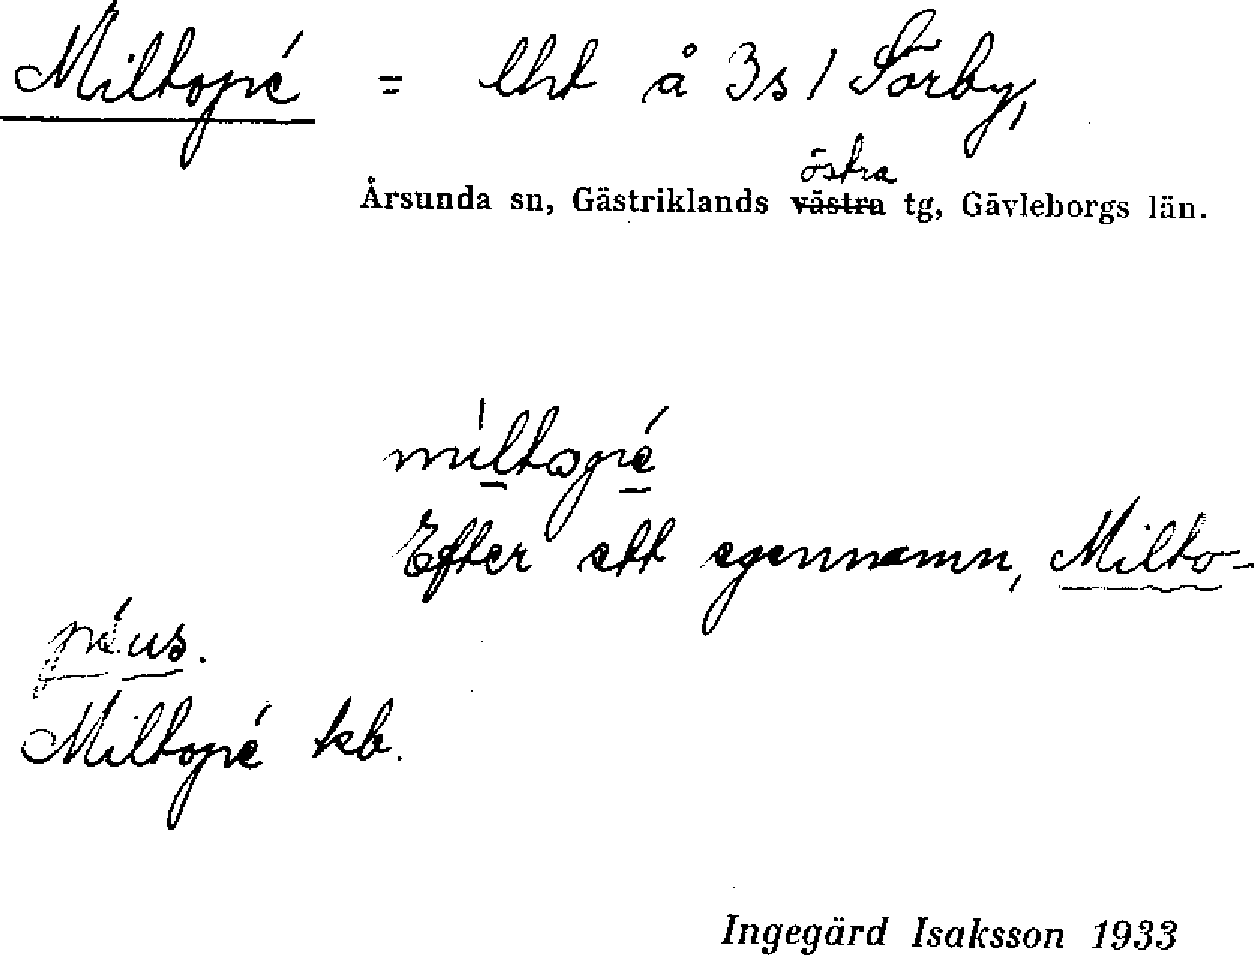 Miltopé = lht å 3s1 Sörby,
östra
Årsunda sn, Gästriklands västra tg, Gävleborgs län.
miltopé
Efter ett egennamn, Milto-
péus.
Miltopé kb.
Ingegärd Isaksson 1933